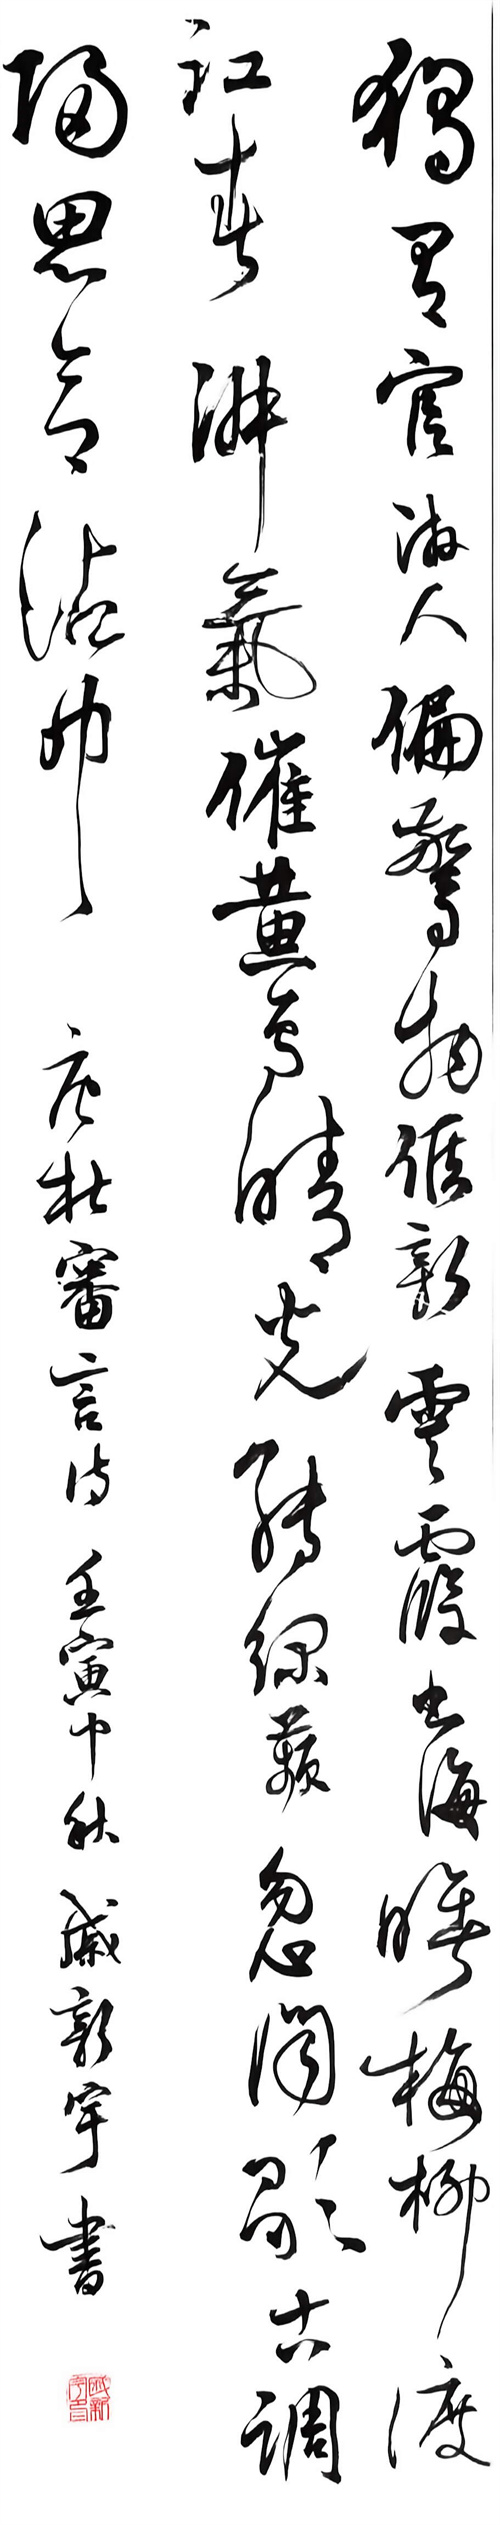 獨有宦游人偏驚物候新雲霞出海曙梅柳渡
江春淑氣催黃鳥晴光轉綠蘋忽聞歌古調
歸思令沾巾 唐杜審言詩 壬寅中秋 戚新宇書
戚新宇印